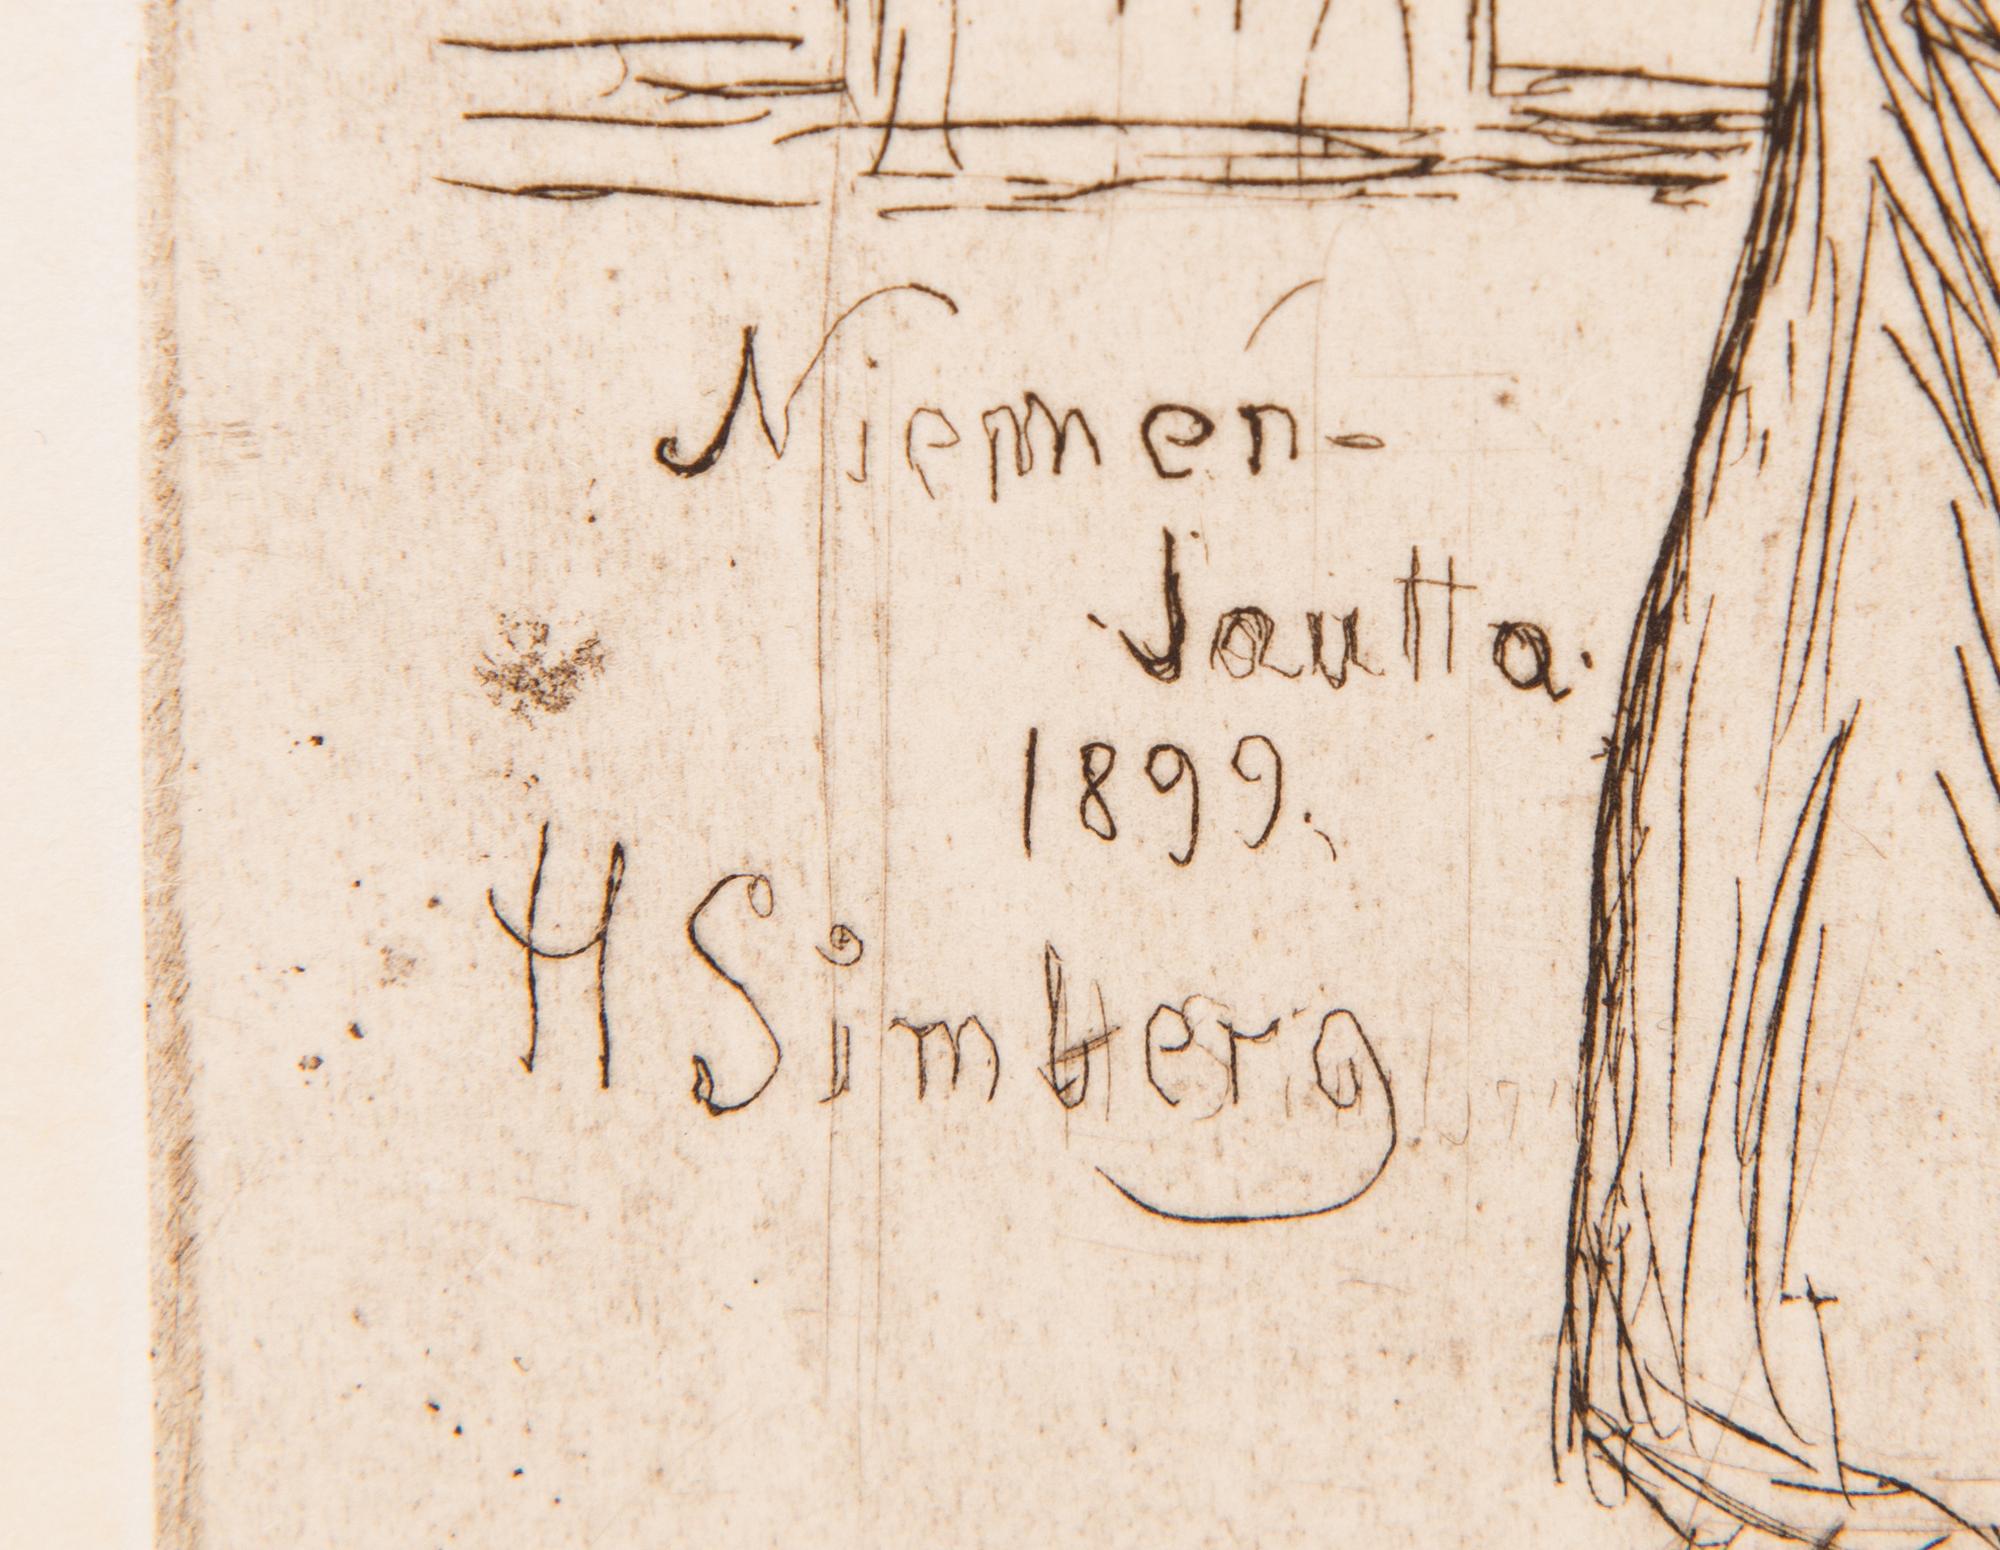 Niemen-
Jautta.
1899.
H Simberg